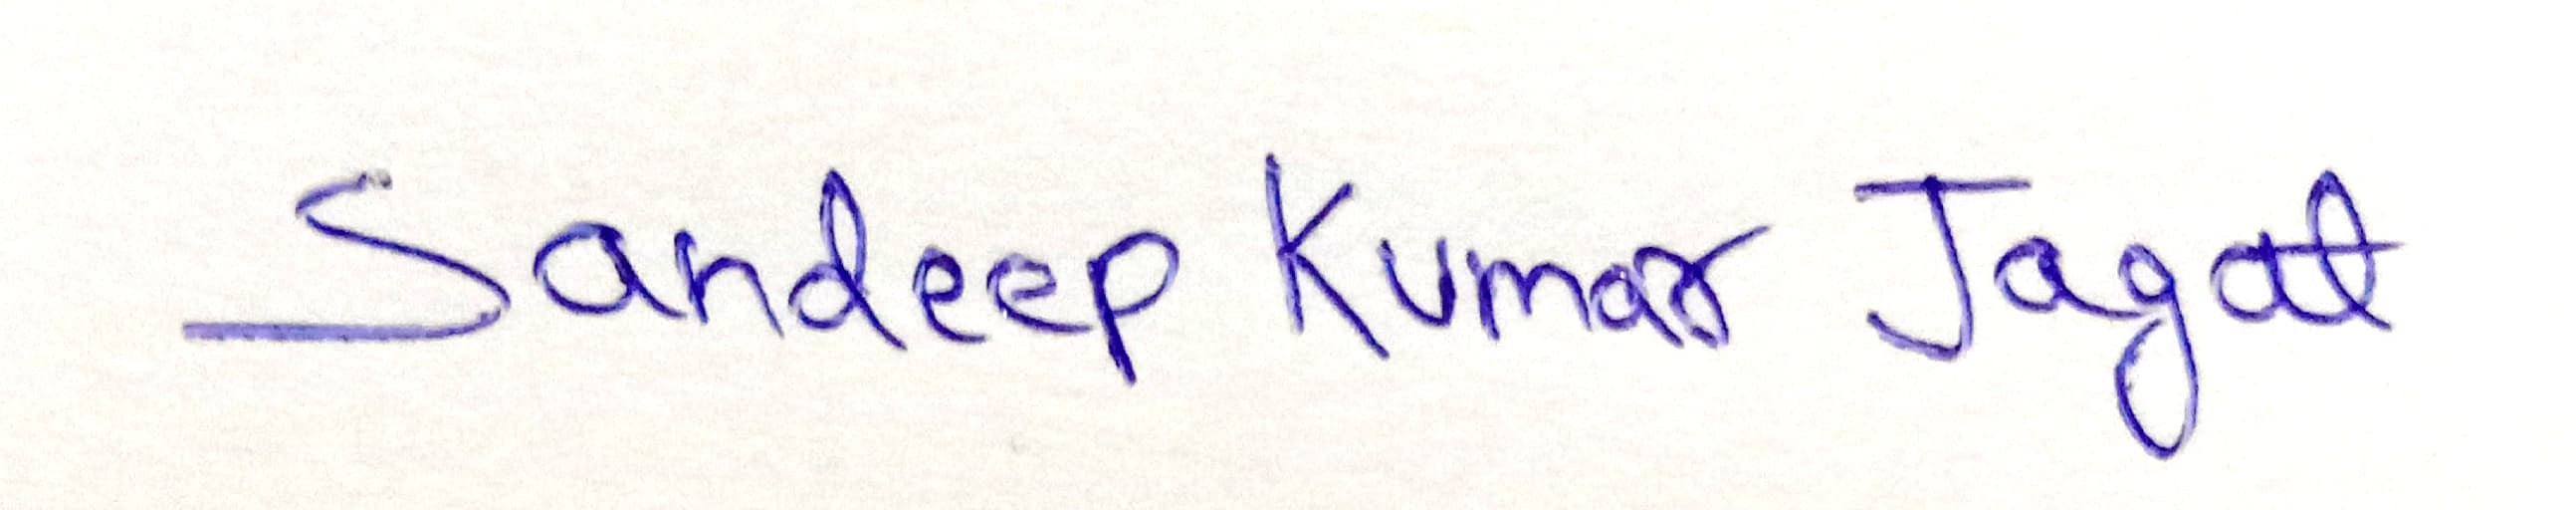 Sandeep Kumar Jagat